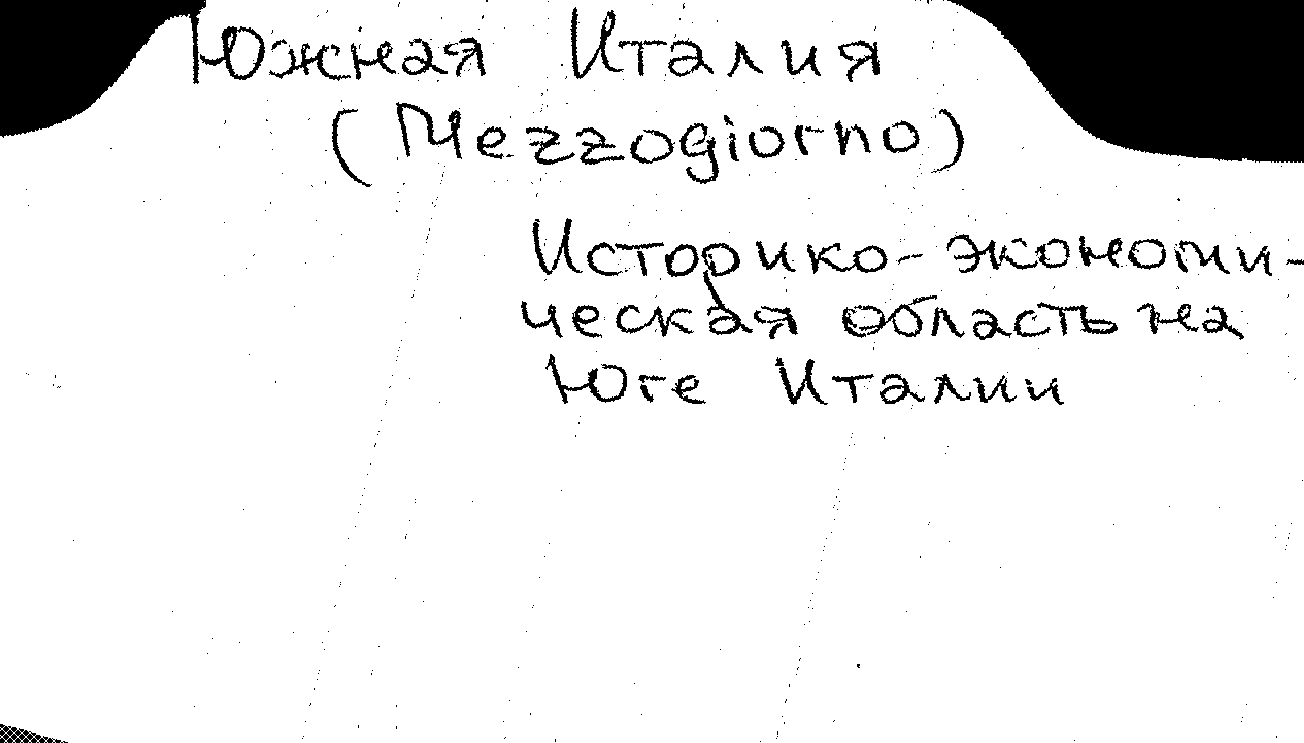 Южная Италия
(Mezzogiorno)
Историко-экономи-
ческая область на
Юге Италии